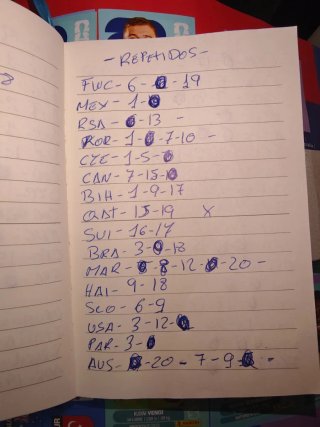 - REPETIDOS -
FWC - 6 - - 19
MEX - 1 -
RSA - - 13 -
KOR - 1 - - 7 - 10 -
CZE - 1 - 5 -
CAN - 7 - 15 -
BIH - 1 - 9 - 17
QAT - 15 - 19 X
SUI - 16 - 17
BRA - 3 - - 18
MAR - - 8 - 12 - - 20 -
HAI - 9 - 18
SCO - 6 - 9
USA - 3 - 12 -
PAR - 3 -
AUS - - 20 - 7 - 9 - -